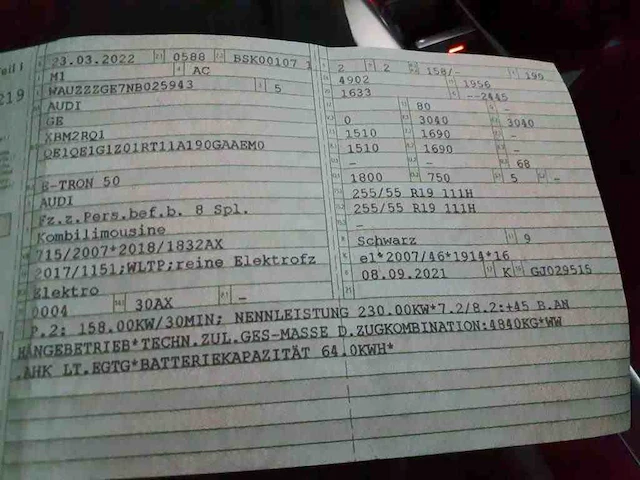 Teil I
219
23.03.2022 0588 BSK00107 1
M1 AC
WAUZZZGE7NB025943 5
AUDI
GE
XBM2RQ1
QE1QE1G1Z01RT11A190GAAEM0
E-TRON 50
AUDI
Fz.z.Pers.bef.b. 8 Spl.
Kombilimousine
715/2007*2018/1832AX
2017/1151;WLTP;reine Elektrofz
Elektro
0004 30AX -
2 2 158/- 199
4902 1956
1633 --2445
80 -
0 3040 3040
1510 1690 -
1510 1690 -
- - 68
1800 750 5 -
255/55 R19 111H
255/55 R19 111H
-
Schwarz 9
e1*2007/46*1914*16
08.09.2021 K GJ029515
P.2: 158.00KW/30MIN; NENNLEISTUNG 230.00KW*7.2/8.2:+45 B.AN
HÄNGEBETRIEB*TECHN.ZUL.GES-MASSE D.ZUGKOMBINATION:4840KG*WW
.AHK LT.EGTG*BATTERIEKAPAZITÄT 64.0KWH*